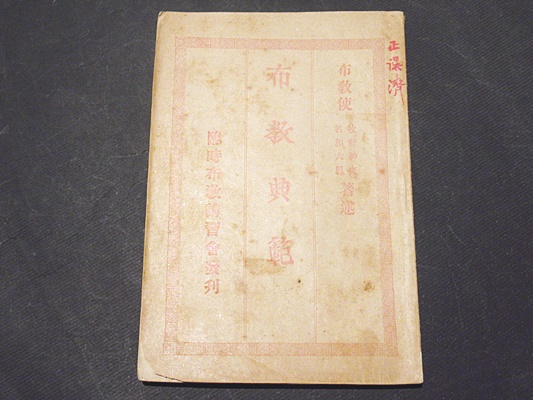 正誤済
布教使 著述
布教典範
臨時布教講習会発刊